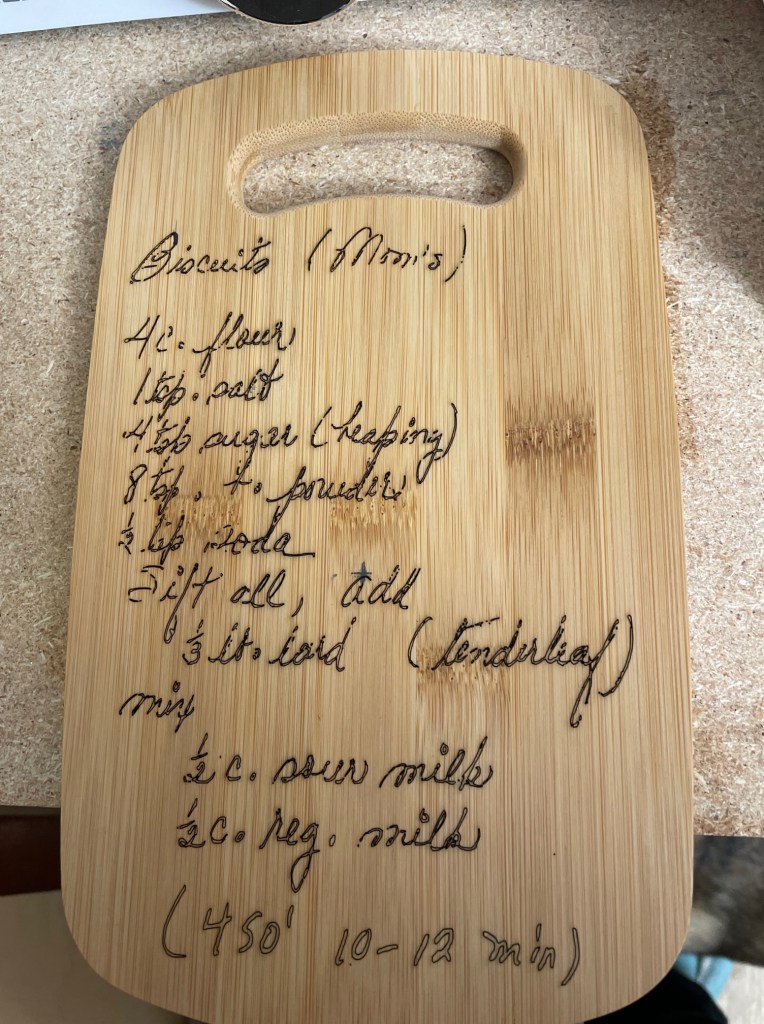 Biscuits (Mom's)
4 c. flour
1 tsp. salt
4 tsp sugar (heaping)
8 tsp. powder
½ tsp soda
Sift all, add
⅓ lard (tenderleaf)
mix
½ c. sour milk
½ c. reg. milk
(450' 10-12 min)